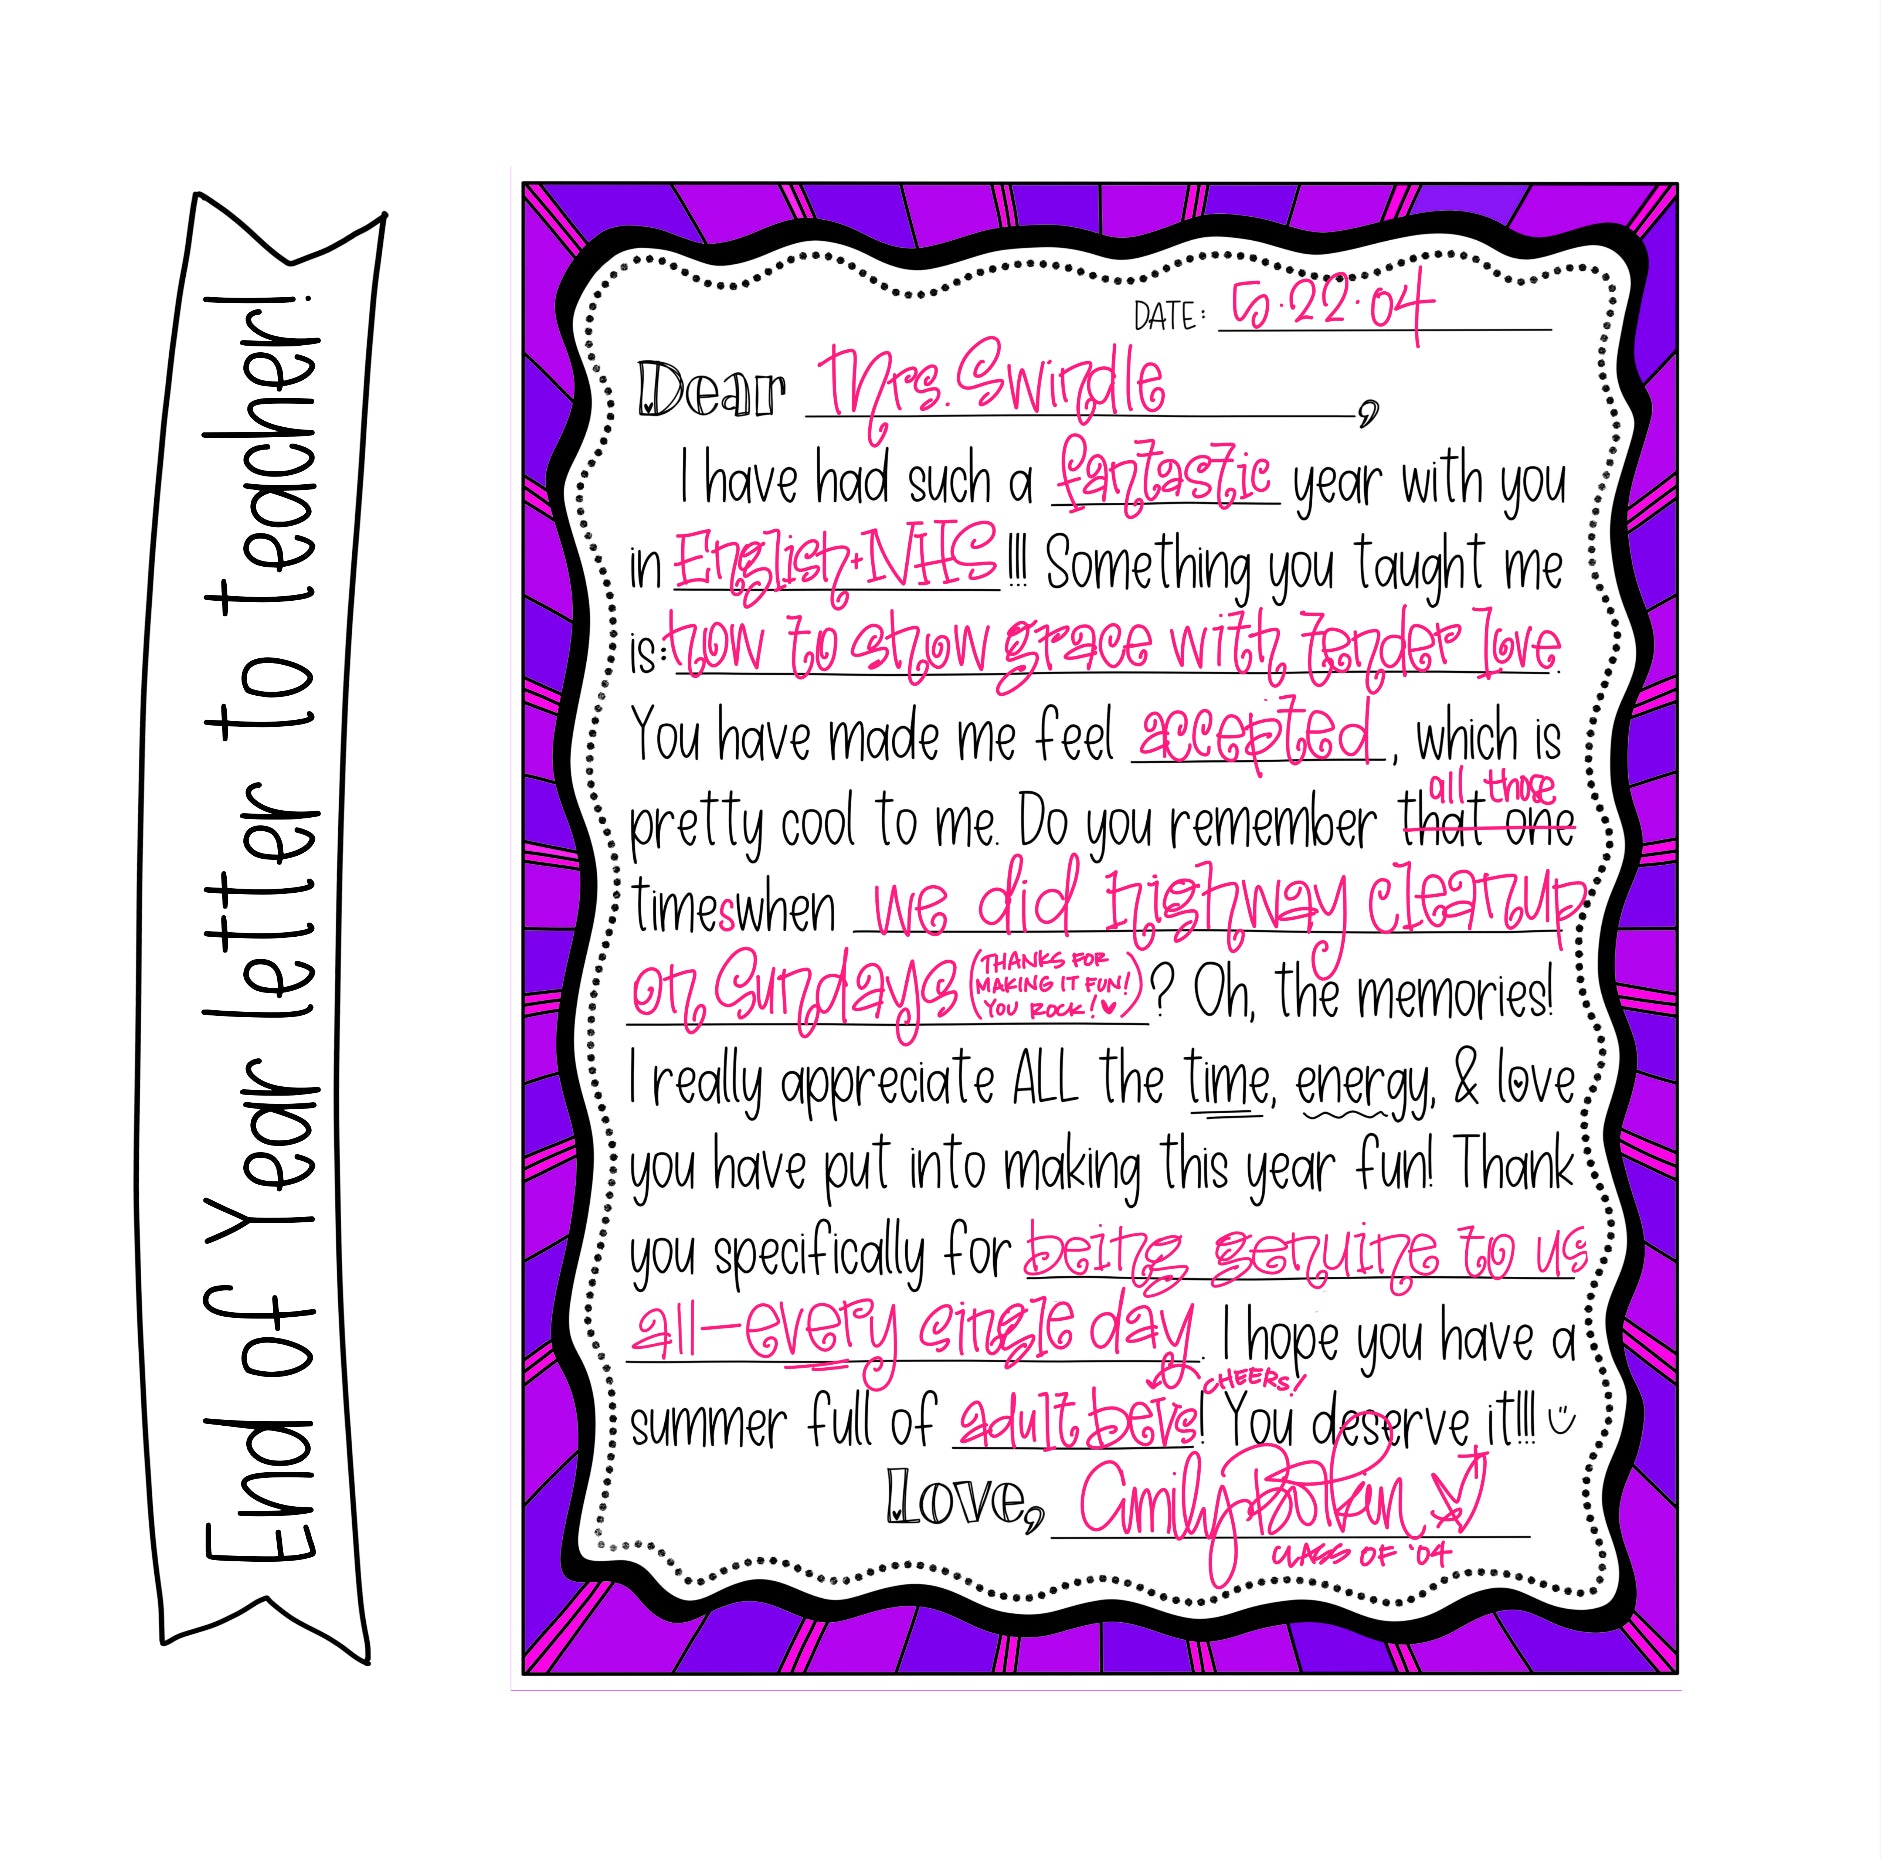 End of Year letter to teacher!
DATE: 5.22.04
Dear Mrs. Swindle,
I have had such a fantastic year with you
in English+NHS!!! Something you taught me
is: how to show grace with tender love.
You have made me feel accepted, which is
all those
pretty cool to me. Do you remember that one
times when we did highway cleanup
on Sundays (THANKS FOR MAKING IT FUN! YOU ROCK! ♥)? Oh, the memories!
I really appreciate ALL the time, energy, & love
you have put into making this year fun! Thank
you specifically for being genuine to us
all—every single day. I hope you have a
CHEERS!
summer full of adult bevs! You deserve it!!!
Love, Emily Botkin
CLASS OF '04